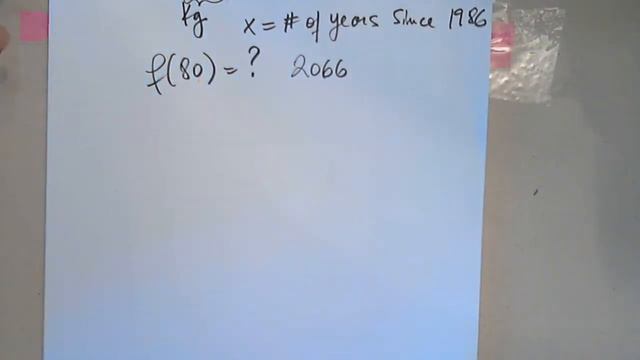 kg x = # of years since 1986
f(80) = ? 2066